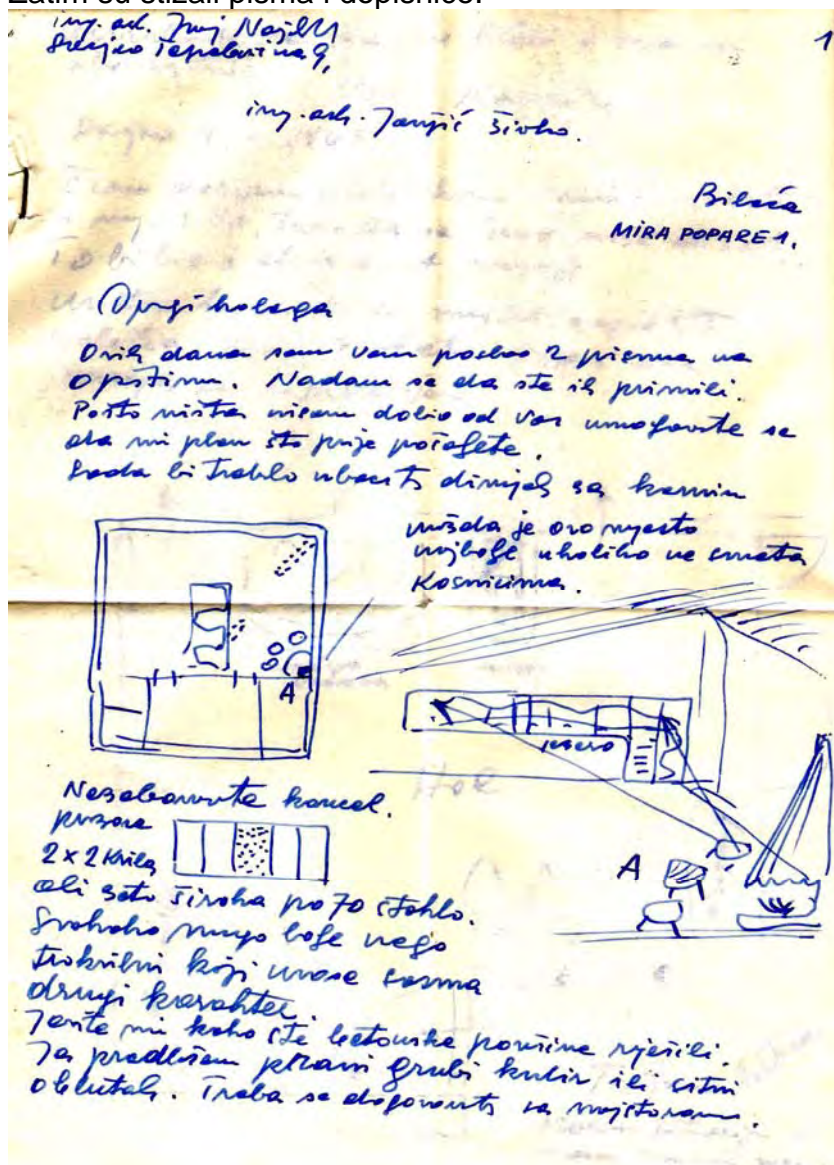 Zatim su stizali pisma i dopisnice:
1
ing. arh. Juraj Najdhart
ing. arh. Janjić Živko.
Bileća
MIRA POPARE 1.
Dragi kolega
Ovih dana sam vam poslao 2 pisma na
Opštinu. Nadam se da ste ih primili.
Pošto ništa nisam dobio od Vas umoljavate se
da mi plan što prije pošaljete.
Sada bi trebalo ubaciti dimnjak sa kamin
možda je ovo mjesto
najbolje ukoliko ne smeta
Kosnicima.
A
jezero
Nezaboravite kancel.
prozore
2 x 2 krila
ali zato široka po 70 staklo.
A
Svakako mnogo bolje nego
trokrilni koji unose sasma
drugi karakter.
Javite mi kako ste betonske površine riješili.
Ja predlažem prani grubi kulir, ili sitni
oblutak. Treba se dogovoriti sa majstorom.